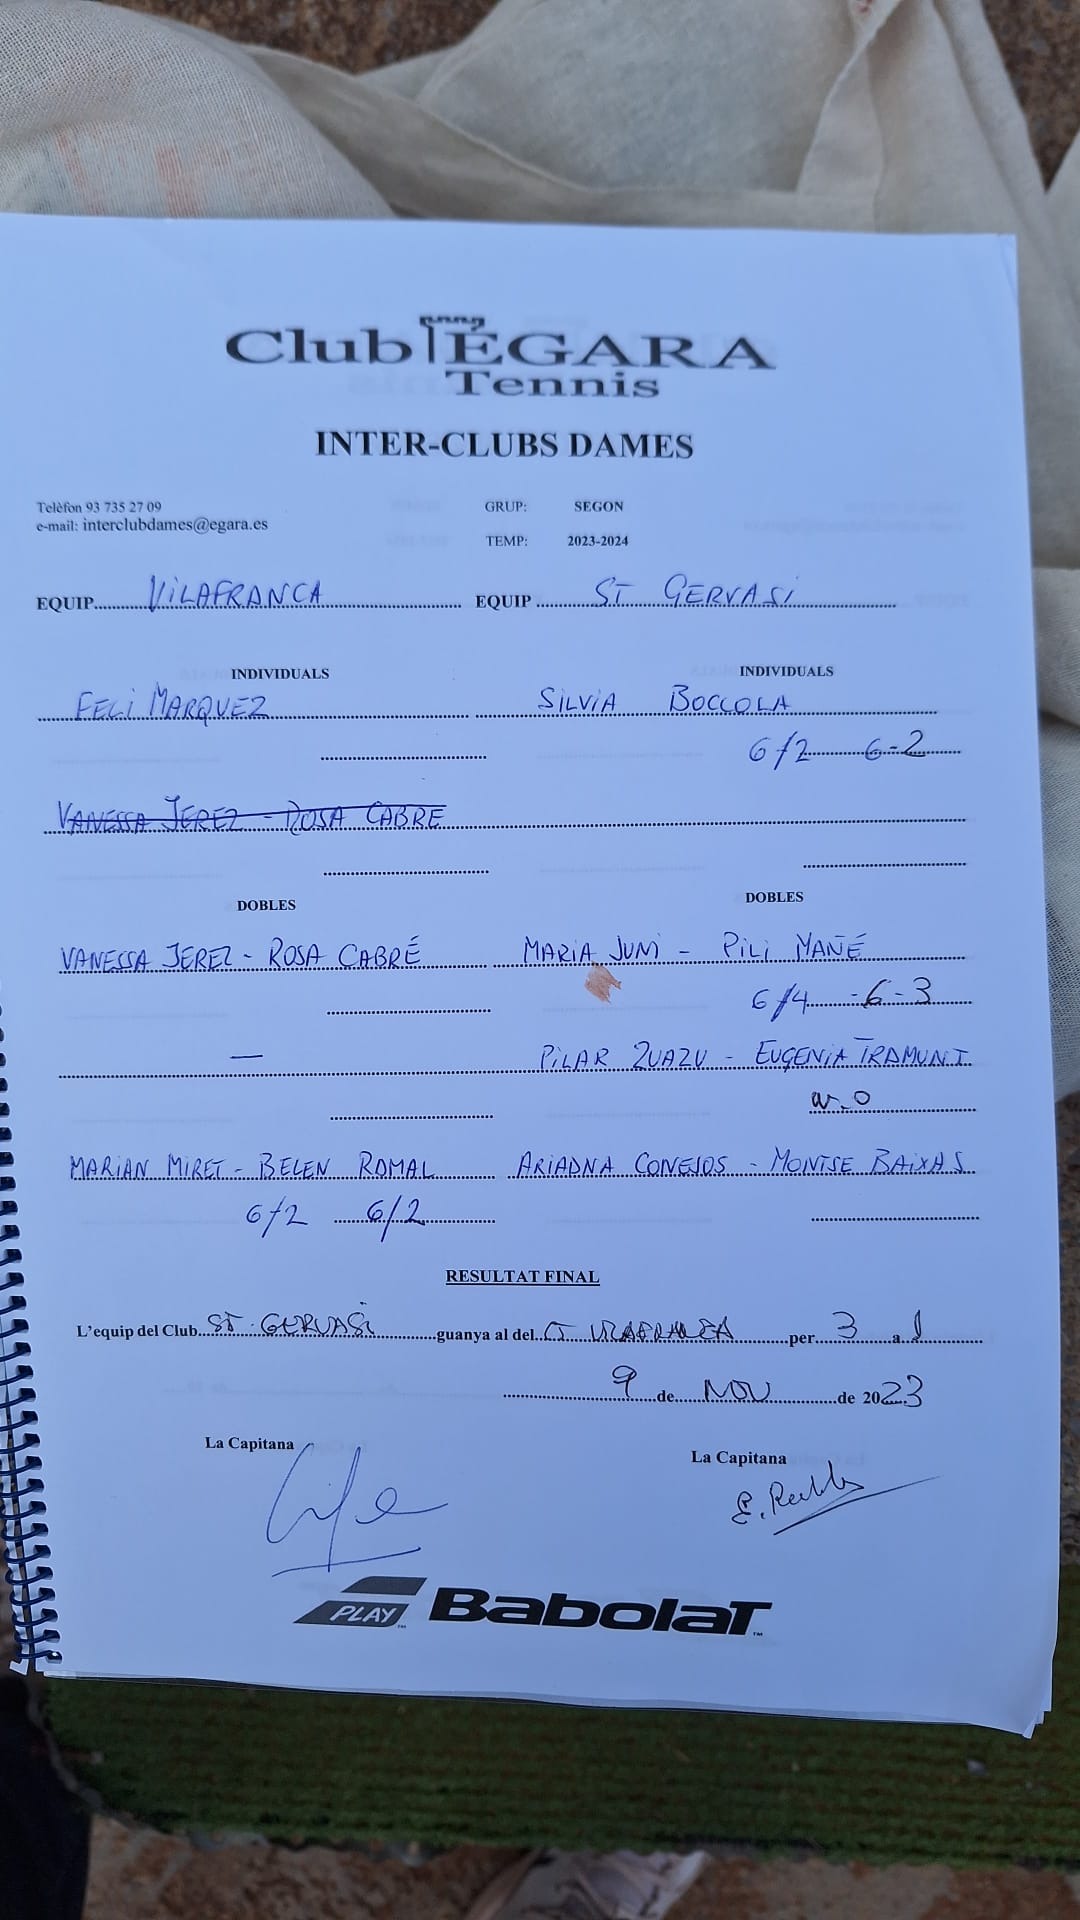 Club ÉGARA
Tennis
INTER-CLUBS DAMES
Telèfon 93 735 27 09
e-mail: interclubdames@egara.es
GRUP: SEGON
TEMP: 2023-2024
EQUIP VILAFRANCA EQUIP ST GERVASI
INDIVIDUALS INDIVIDUALS
FELI MARQUEZ SILVIA BOCCOLA
6/2 6-2
VANESSA JEREZ - ROSA CABRE
DOBLES DOBLES
VANESSA JEREZ - ROSA CABRÉ MARIA JUNI - PILI MAÑÉ
6/4 -6-3
— PILAR ZUAZU - EUGENIA TRAMUNT
w.o
MARIAN MIRET - BELEN ROMAL ARIADNA CONEJOS - MONTSE BAIXAS
6/2 6/2
RESULTAT FINAL
L'equip del Club ST. GERVASI guanya al del VILAFRANCA per 3 a 1
9 de NOV de 2023
La Capitana La Capitana
PLAY Babolat